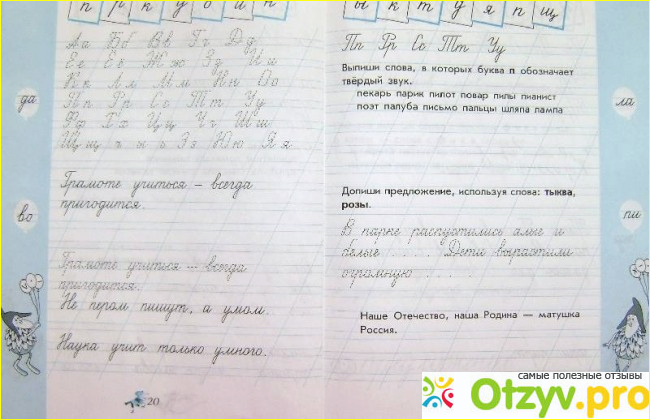 п р к у о и н
Аа Бб Вв Гг Дд
Ее Ёё Жж Зз Ии
Кк Лл Мм Нн Оо
Пп Рр Сс Тт Уу
Фф Хх Цц Чч Шш
Щщ ъ ы ь Ээ Юю Яя
да
Грамоте учиться – всегда
пригодится.
во
Грамоте учиться – всегда
пригодится.
Не пером пишут, а умом.
Наука учит только умного.
20
ы к т д я п щ
Пп Рр Сс Тт Уу
Выпиши слова, в которых буква п обозначает
твёрдый звук.
пекарь парик пилот повар пилы пианист
поэт палуба письмо пальцы шляпа лампа
ла
Допиши предложение, используя слова: тыква,
розы.
пи
В парке распустились алые и
белые . . . . Дети вырастили
огромную . . . .
Наше Отечество, наша Родина — матушка
Россия.
самые полезные отзывы
Otzyv.pro